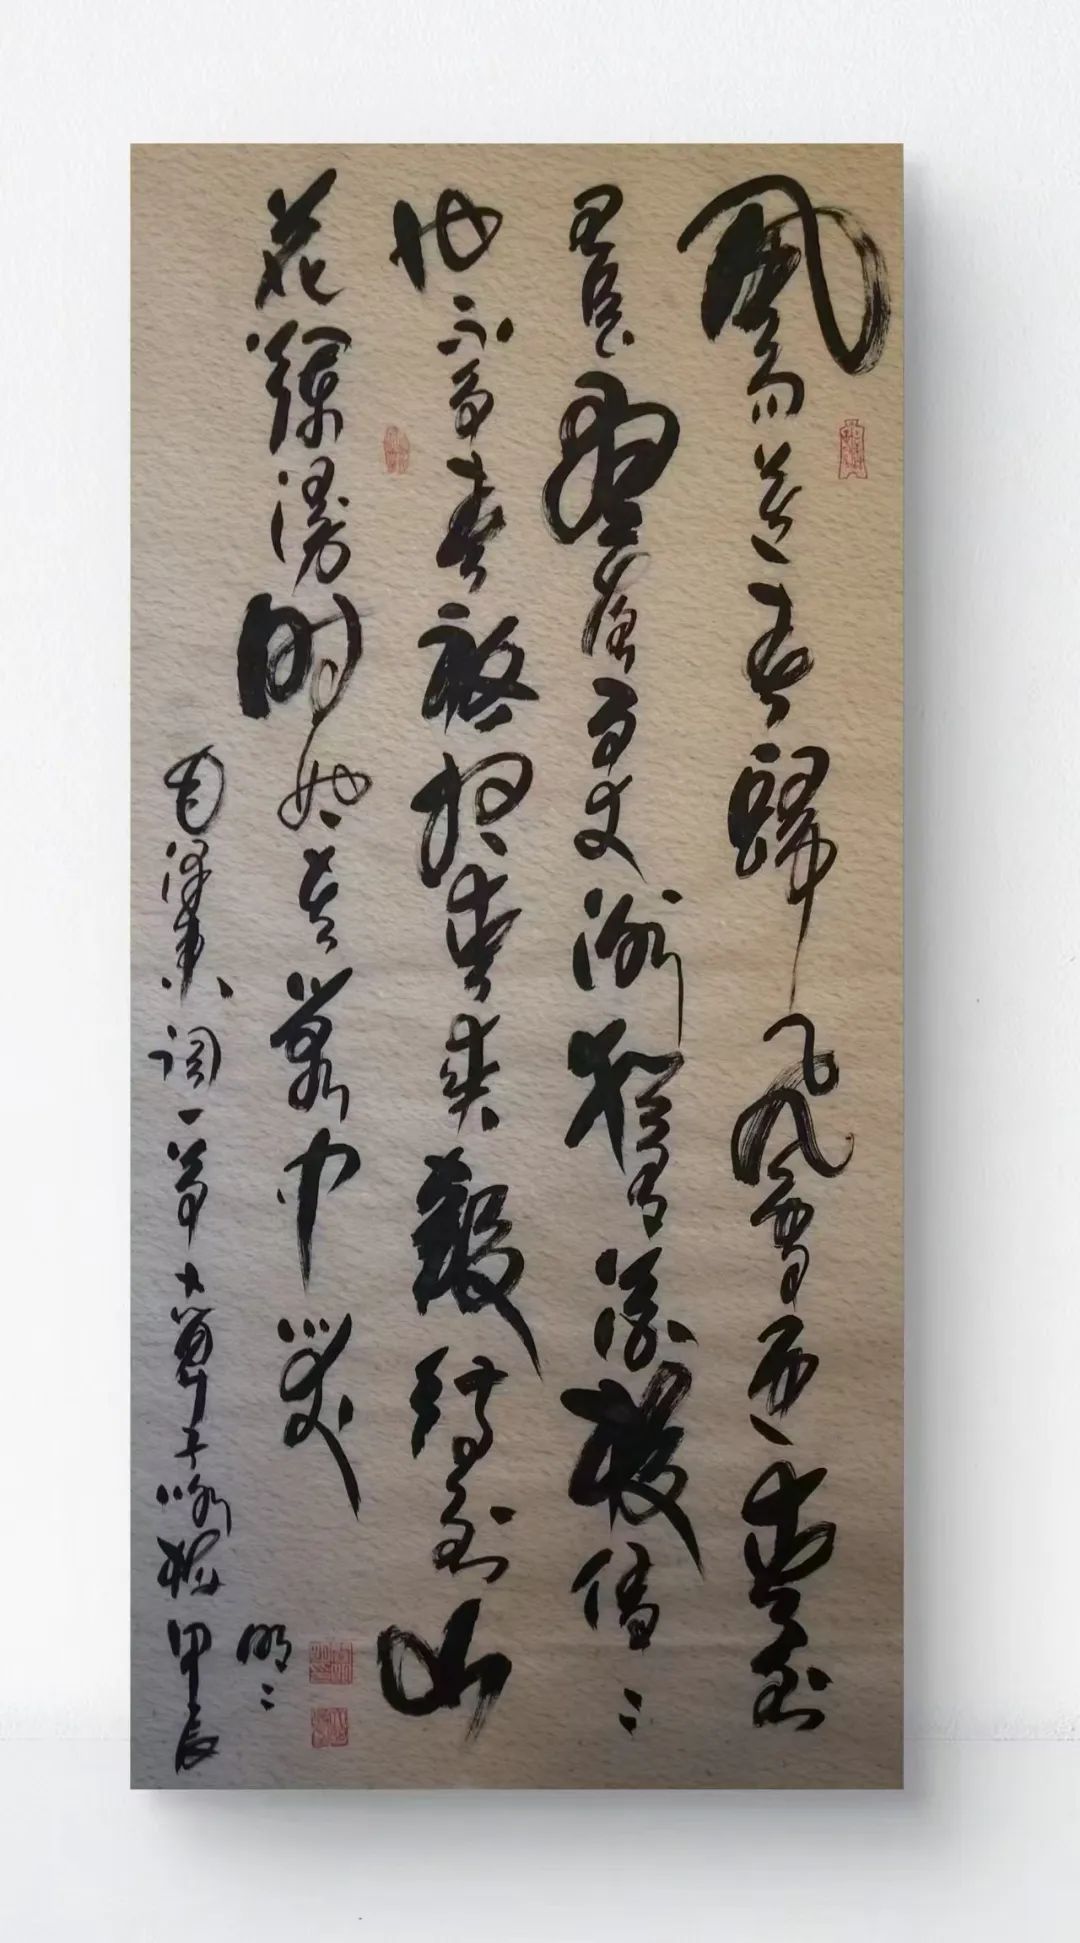 風雨送春歸飛雪迎春到
已是懸崖百丈冰猶有花枝俏〻
也不爭春祇把春來報待到山
花爛漫時她在叢中笑
毛澤東词一首卜算子咏梅甲辰
明〻